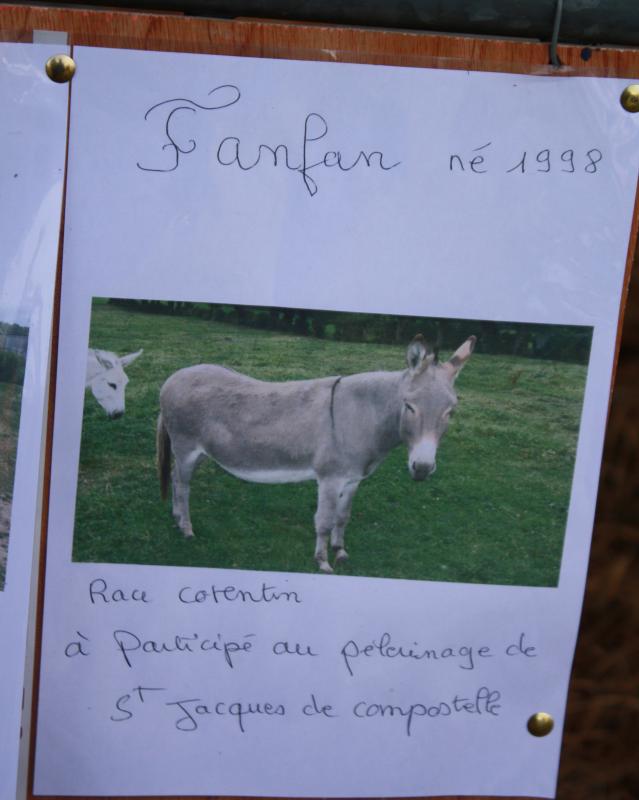 Fanfan né 1998
Race cotentin
à Participé au pélerinage de
St Jacques de compostelle